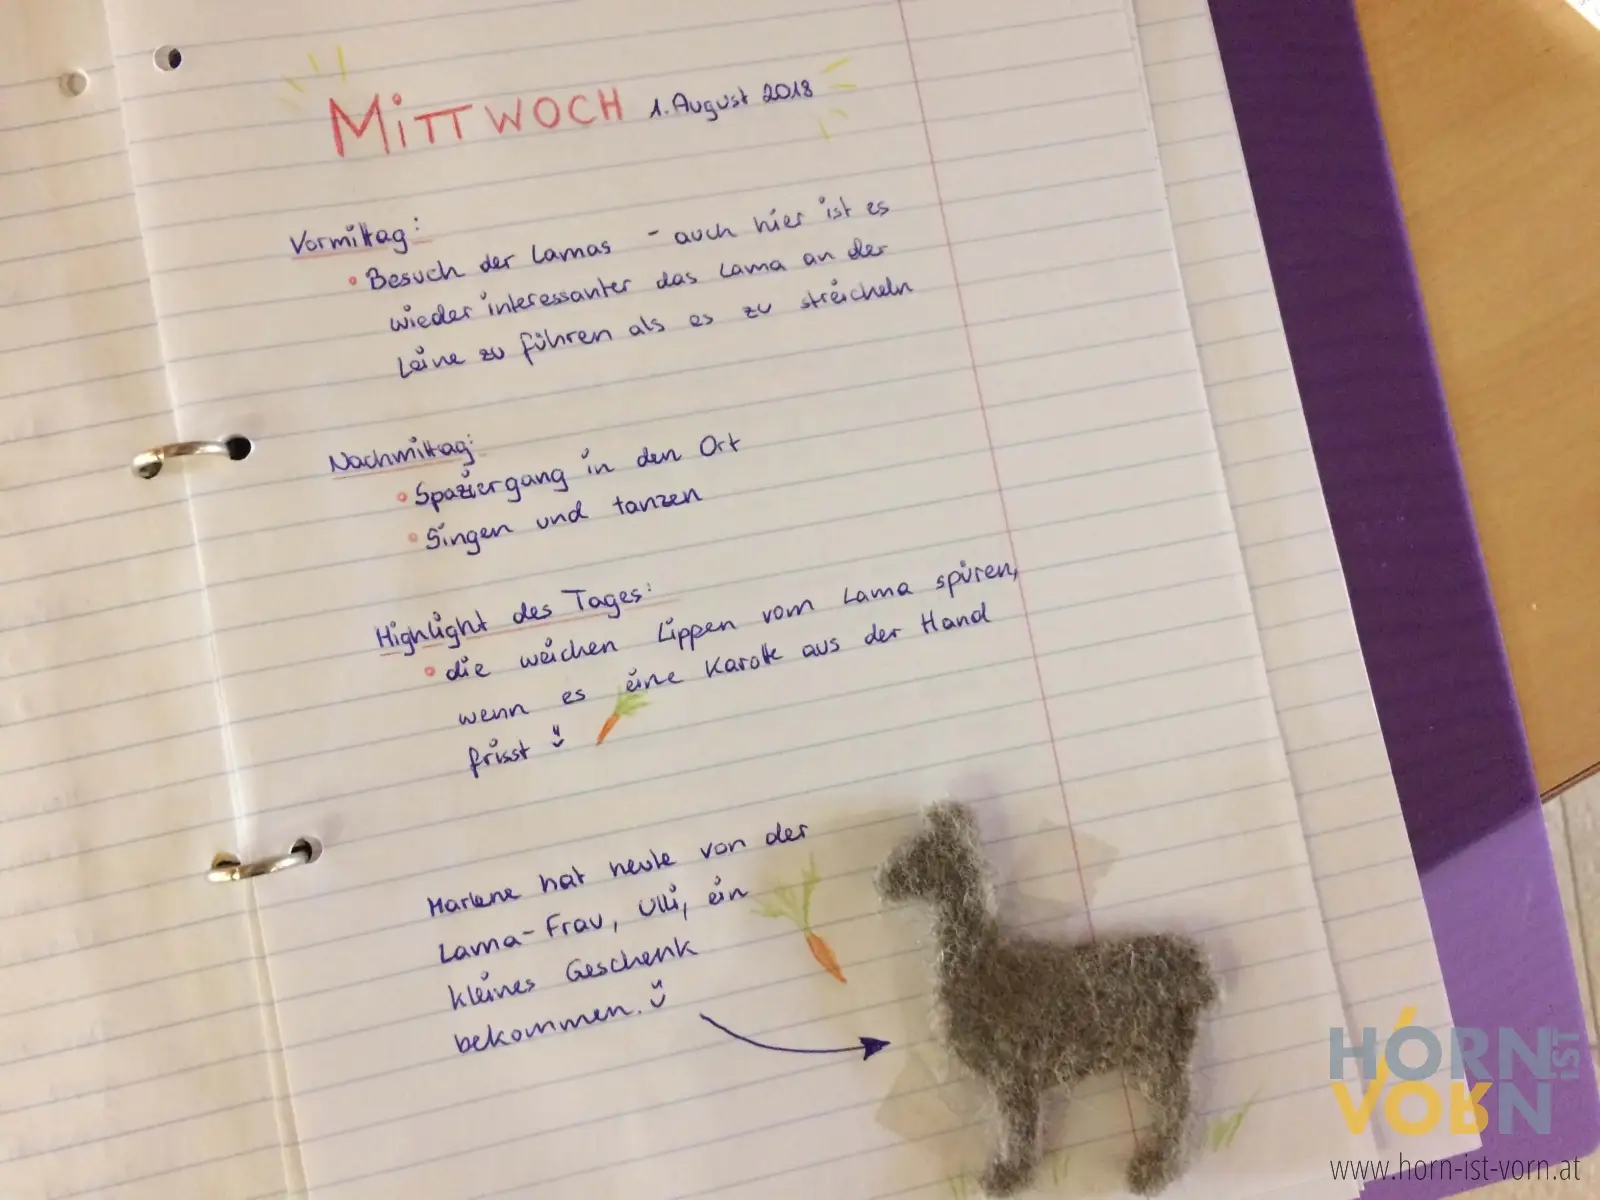 MITTWOCH 1. August 2018
Vormittag:
• Besuch der Lamas - auch hier ist es
wieder interessanter das Lama an der
Leine zu führen als es zu streicheln
Nachmittag:
• Spaziergang in den Ort
• Singen und tanzen
Highlight des Tages:
• die weichen Lippen vom Lama spüren,
wenn es eine Karotte aus der Hand
frisst
Marlene hat heute von der
Lama-Frau, Ulli, ein
kleines Geschenk
bekommen.
HORN IST
VORN
www.horn-ist-vorn.at